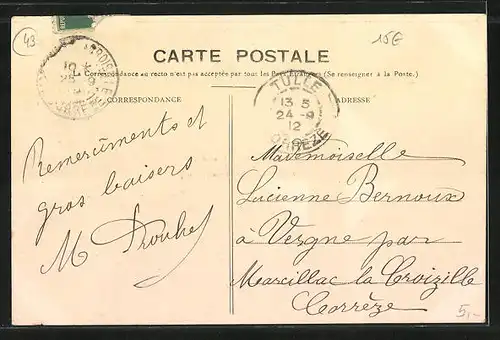 43
15€
CARTE POSTALE
La Correspondance au recto n'est pas acceptée par tout les Pays Etrangers (Se renseigner à la Poste.)
CORRESPONDANCE
ADRESSE
TULLE
13 5
24 - 9
12
CORREZE
Remerciments et
gros baisers
M
Mademoiselle
Lucienne Bernoux
à Vergne par
Marcillac la Croizille
Corrèze
5,-